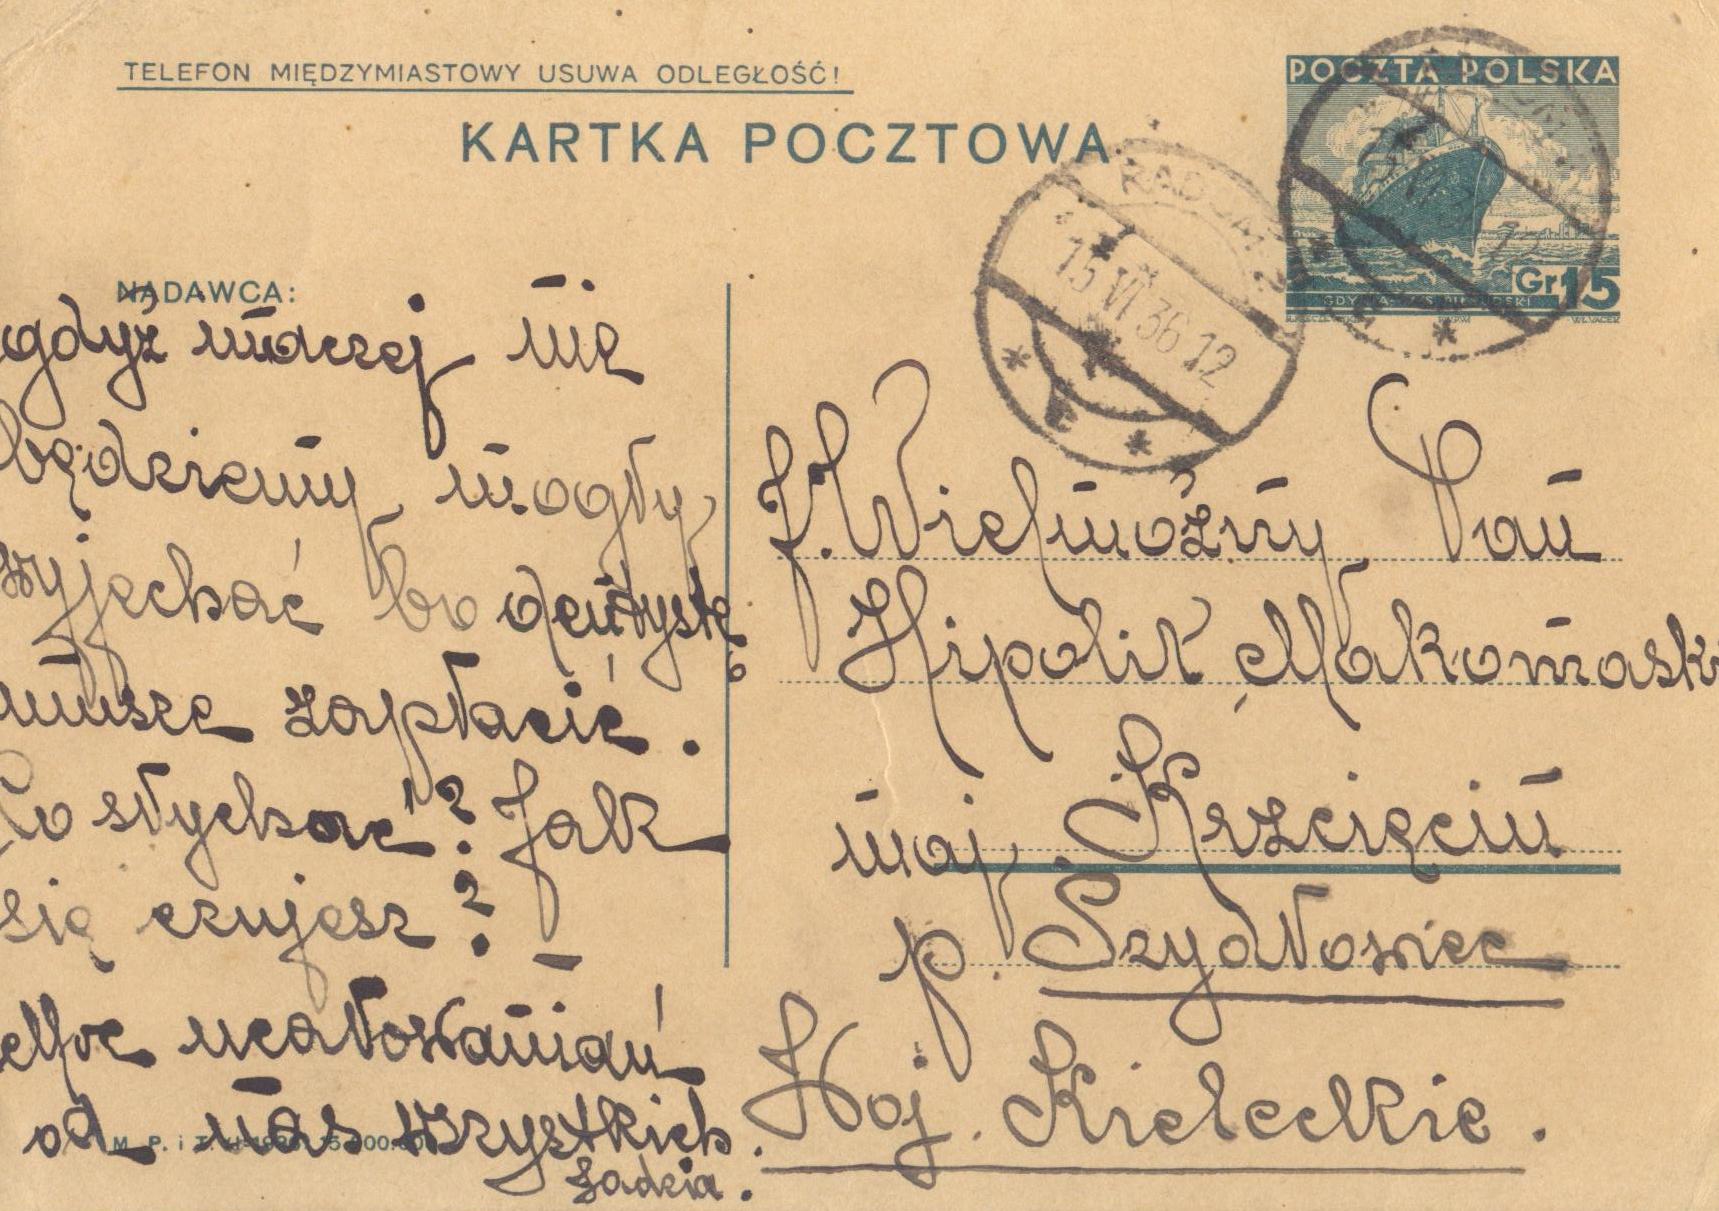 TELEFON MIĘDZYMIASTOWY USUWA ODLEGŁOŚĆ!
KARTKA POCZTOWA
POCZTA POLSKA
Gr 15
RADOM 2
15 VI 36 12
NADAWCA:
gdyż inaczej nie
będziemy mogły
wyjechać bo dentystę
muszę zapłacić.
Co słychać? Jak
się czujesz?
Moc ucałowań
od nas wszystkich.
Jadzia.
J. Wielmożny Pan
Hipolit Makomaski
maj. Krzcięcin
p. Szydłowiec
Woj. Kieleckie.